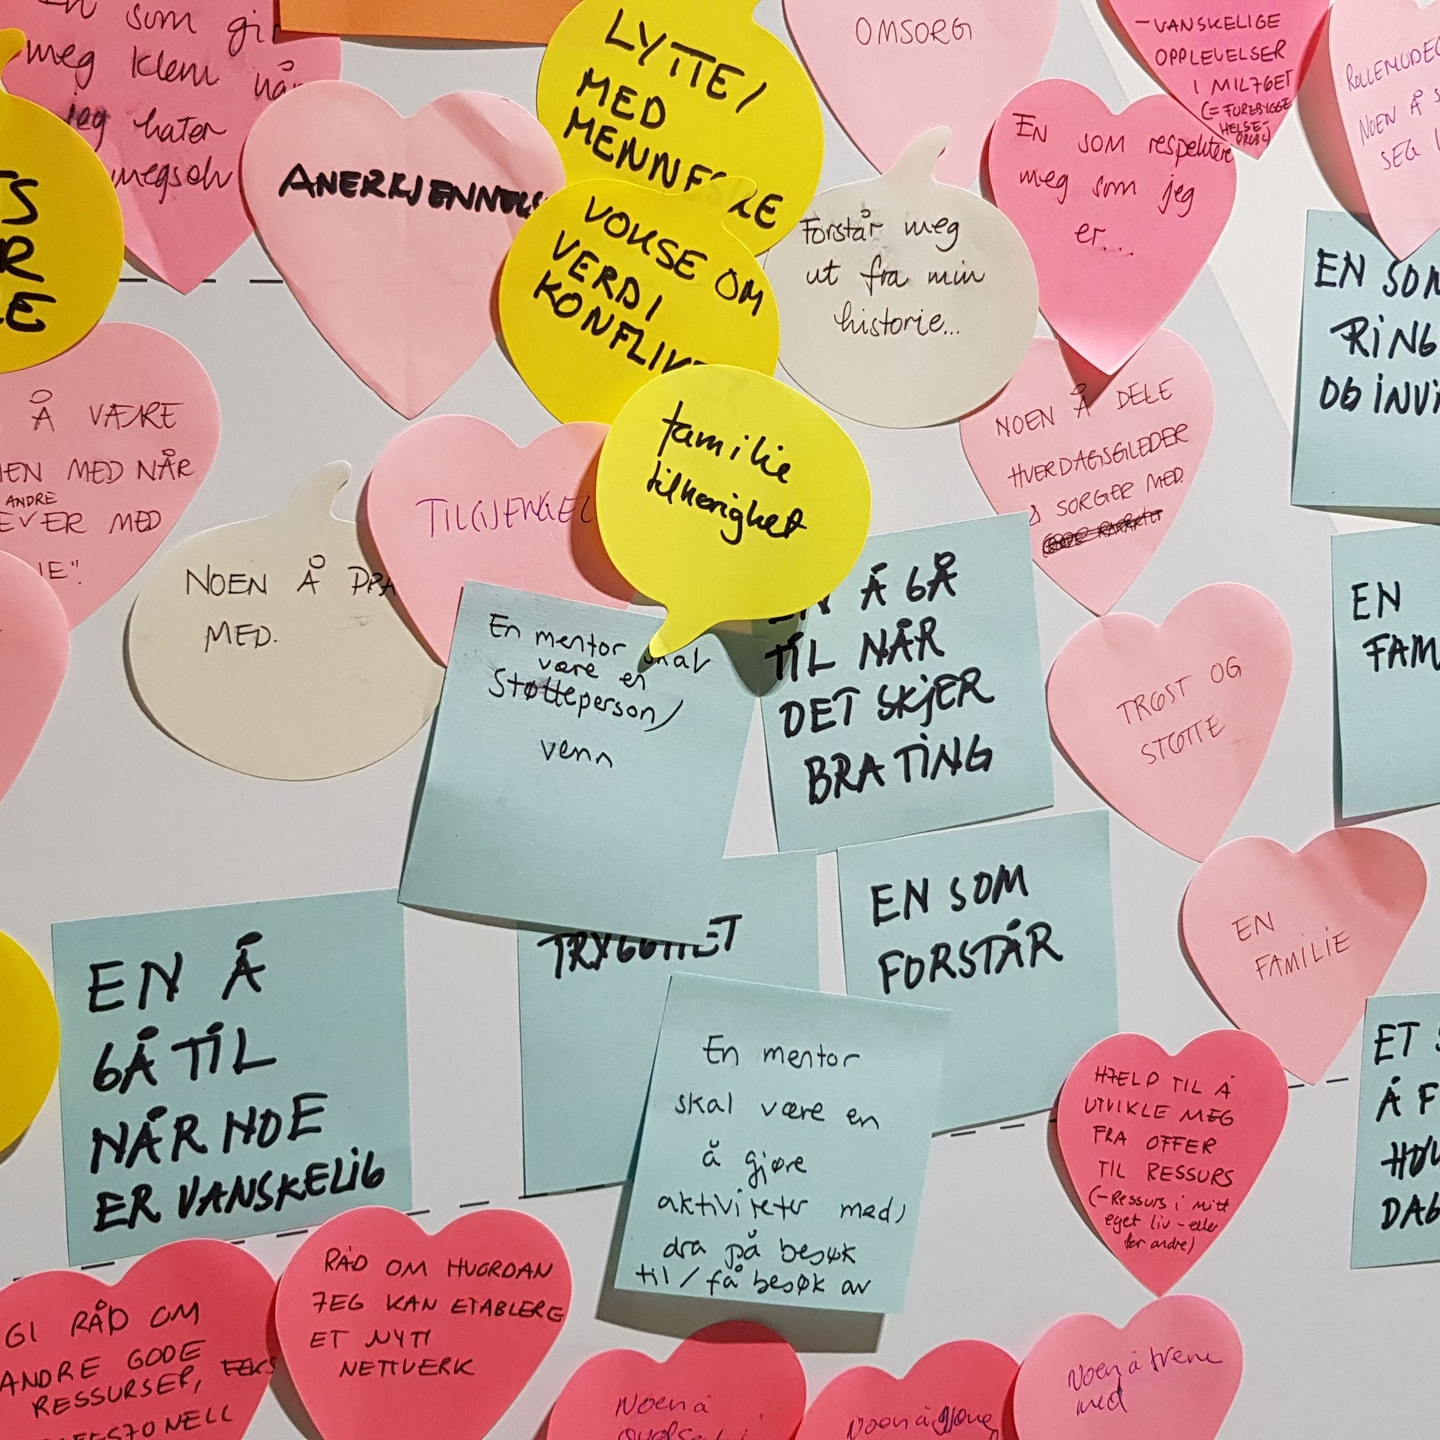 som
meg klem når
jeg hater
megselv
ANERKJENNELSE
LYTTE/
MED
MENNESKE
VOKSE OM
VERDI
KONFLIKT
OMSORG
-VANSKELIGE
OPPLEVELSER
I MILJØET
(= FOREBYGGE
HELSE
Forstår meg
ut fra min
historie...
EN som respekterer
meg som jeg
er...
NOEN Å
SEG
EN SOM
RING
OG INVI
Å VÆRE
MED NÅR
ANDRE
EVER MED
NOEN Å DRA
MED.
TILGJENGEL
familie
tilhørighet
NOEN Å DELE
HVERDAGSGLEDER
SORGER MED
En mentor skal
være en
Støtteperson/
venn
EN Å GÅ
TIL NÅR
DET SKJER
BRA TING
TRØST OG
STØTTE
EN
FAM
EN Å
GÅ TIL
NÅR NOE
ER VANSKELIG
TRYGGHET
EN SOM
FORSTÅR
EN
FAMILIE
En mentor
skal være en
å gjøre
aktiviteter med,
dra på besøk
til/få besøk av
HJELP TIL Å
UTVIKLE MEG
FRA OFFER
TIL RESSURS
(-Ressurs i mitt
eget liv - eller
for andre)
ET
Å F
DAG
GI RÅD OM
ANDRE GODE
RESSURSER,
RÅD OM HVORDAN
JEG KAN ETABLERE
ET NYTT
NETTVERK
Noen å
Noen å
Noen å trene
med